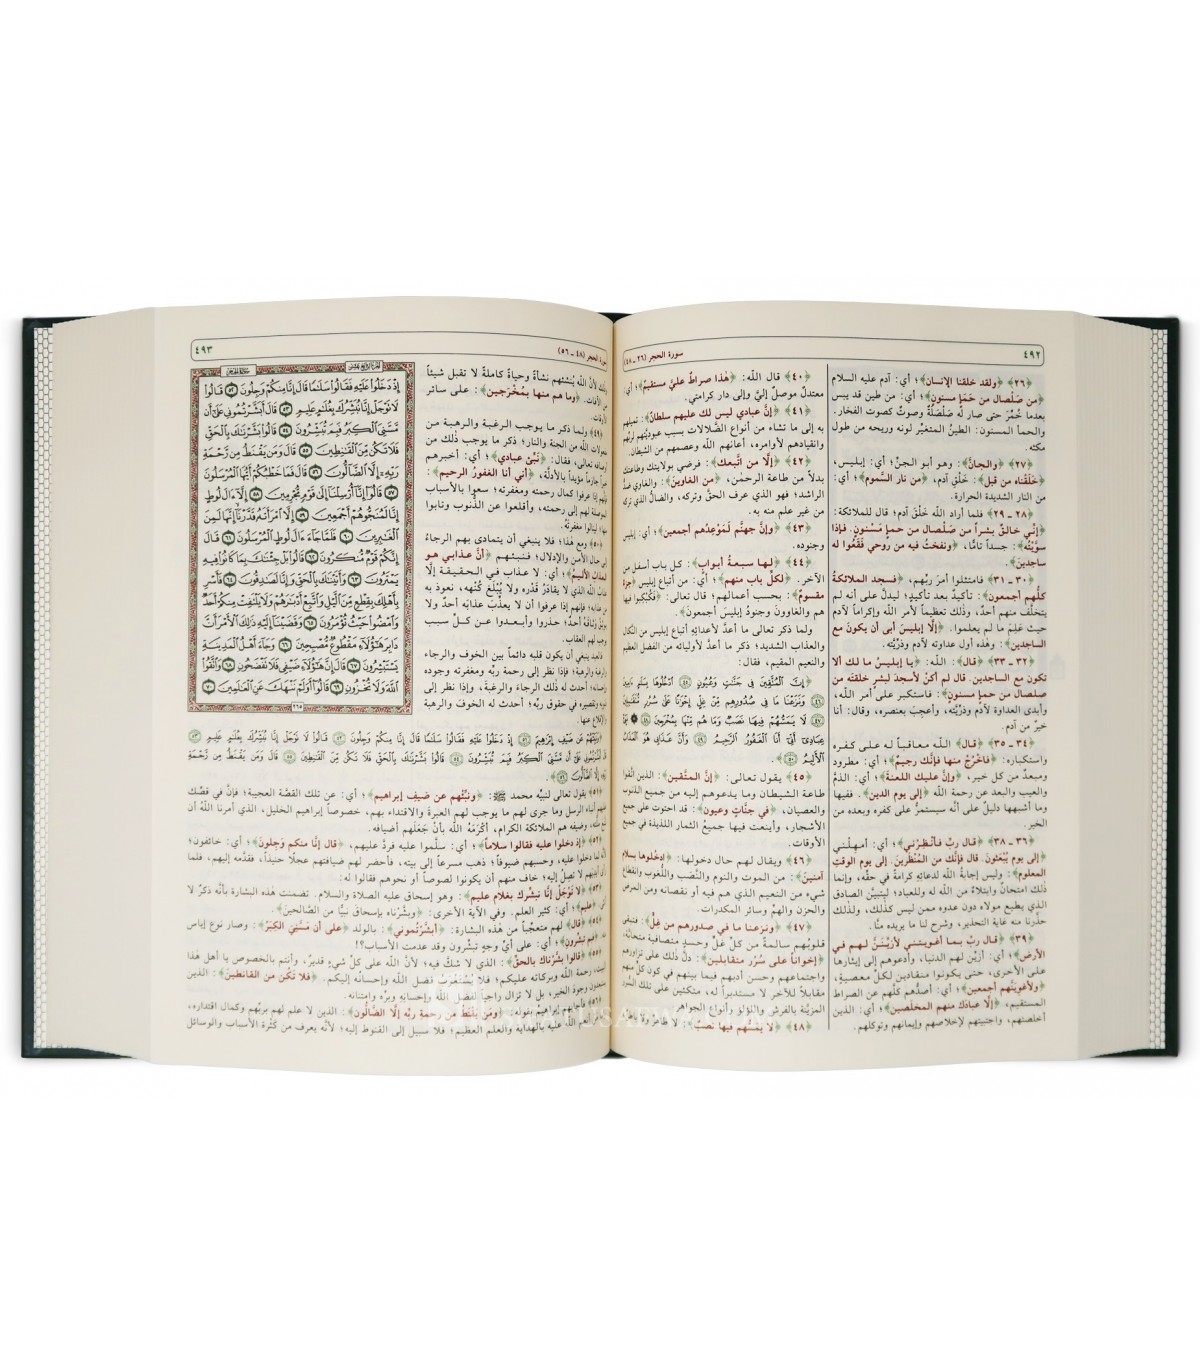 ٤٩٢
سورة الحجر (٢٦ ـ ٤٨)
﴿٢٦﴾ ﴿ولقد خلقنا الإنسان﴾؛ أي: آدم عليه السلام
﴿من صَلْصال من حَمَإٍ مسنونٍ﴾؛ أي: من طين قد يبس
بعدما خُمِّرَ حتى صار له صَلْصَلَةٌ وصوتٌ كصوت الفخار.
والحمأ المسنون: الطينُ المتغيّر لونه وريحه من طول
مكثه.
﴿٢٧﴾ ﴿والجانَّ﴾: وهو أبو الجنِّ؛ أي: إبليس،
﴿خَلَقْناه من قبل﴾: خَلْقِ آدم، ﴿من نار السَّموم﴾؛ أي:
من النار الشديدة الحرارة.
﴿٢٨ ـ ٢٩﴾ فلما أراد الله خَلْقَ آدم؛ قال للملائكة:
﴿إنِّي خالقٌ بشراً من صَلْصال من حمإٍ مَسْنونٍ. فإذا
سوَّيْتُه﴾: جسداً تامًّا، ﴿ونفختُ فيه من روحي فَقَعُوا له
ساجدين﴾.
﴿٣٠ ـ ٣١﴾ فامتثلوا أمر ربِّهم، ﴿فسجد الملائكةُ
كلُّهم أجمعون﴾: تأكيدٌ بعد تأكيدٍ؛ ليدلَّ على أنه لم
يتخلَّف منهم أحدٌ، وذلك تعظيماً لأمر الله وإكراماً لآدم
حيث عَلِمَ ما لم يعلموا. ﴿إلَّا إبليسَ أبى أن يكونَ مع
الساجدين﴾: وهذه أول عداوته لآدم وذرِّيَّته.
﴿٣٢ ـ ٣٣﴾ ﴿قال﴾: الله: ﴿يا إبليسُ ما لك ألا
تكون مع الساجدين. قال لم أكنْ لأسجدَ لبشرٍ خلقتَه من
صلصال من حمإٍ مسنونٍ﴾: فاستكبر على أمر الله،
وأبدى العداوة لآدم وذرِّيَّته، وأعجِبَ بعنصره، وقال: أنا
خيرٌ من آدم.
﴿٣٤ ـ ٣٥﴾ ﴿قال﴾ الله معاقباً له على كفره
واستكباره: ﴿فاخْرُجْ منها فإنك رجيمٌ﴾؛ أي: مطرود
ومبعدٌ من كل خير، ﴿وإنَّ عليك اللعنةَ﴾؛ أي: الذمَّ
والعيب والبعد عن رحمة الله ﴿إلى يوم الدين﴾. ففيها
وما أشبهها دليلٌ على أنَّه سيستمرُّ على كفره وبعده من
الخير.
﴿٣٦ ـ ٣٨﴾ ﴿قال ربِّ فأنظِرْني﴾؛ أي: أمهِلْني
﴿إلى يوم يُبْعَثونَ. قال فإنَّك من المُنْظَرينَ. إلى يوم الوقتِ
المعلوم﴾: وليس إجابةُ الله لدعائِهِ كرامةً في حقِّه، وإنما
ذلك امتحانٌ وابتلاءٌ من الله له وللعباد؛ ليتبيَّنَ الصادق
الذي يطيع مولاه دون عدوه ممن ليس كذلك، ولذلك
حذَّرنا منه غاية التحذير، وشرح لنا ما يريده منَّا.
﴿٣٩﴾ ﴿قال ربِّ بما أغويتني لأزيِّننَّ لهم في
الأرض﴾؛ أي: أزيِّن لهم الدنيا، وأدعوهم إلى إيثارها
على الأخرى، حتى يكونوا منقادين لكلِّ معصيةٍ،
﴿ولأغوِيَنَّهم أجمعين﴾؛ أي: أصدُّهم كلَّهم عن الصراط
المستقيم، ﴿إلَّا عبادَك منهم المخلَصين﴾؛ أي: الذين
أخلصتهم، واجتبيتهم لإخلاصهم وإيمانهم وتوكلهم.
﴿٤٠﴾ قال الله: ﴿هٰذا صراطٌ عليَّ مستقيمٌ﴾؛ أي:
معتدلٌ موصلٌ إليَّ وإلى دار كرامتي.
﴿٤١﴾ ﴿إنَّ عبادي ليس لك عليهم سلطانٌ﴾: تميلهم
به إلى ما تشاء من أنواع الضَّلالات بسبب عبوديَّتهم لربِّهم
وانقيادهم لأوامره، أعانهم الله وعصمهم من الشيطان.
﴿٤٢﴾ ﴿إلَّا من اتَّبعك﴾: فرضي بولايتك وطاعتك
بدلاً من طاعة الرحمٰن، ﴿من الغاوين﴾: والغاوي ضدُّ
الراشد؛ فهو الذي عرف الحقَّ وتركه، والضالُّ الذي تركه
من غير علم منه به.
﴿٤٣﴾ ﴿وإنَّ جهنَّم لَمَوعِدُهم أجمعين﴾؛ أي: إبليس
وجنوده.
﴿٤٤﴾ ﴿لها سبعةُ أبوابٍ﴾: كل باب أسفل من
الآخر. ﴿لكلِّ باب منهم﴾؛ أي: من أتباع إبليس ﴿جزءٌ
مقسومٌ﴾: بحسب أعمالهم؛ قال تعالى: ﴿فكُبْكِبوا فيها
هم والغاوون وجنود إبليسَ أجمعونَ﴾.
ولما ذكر تعالى ما أعدَّ لأعدائه أتباع إبليس من النَّكال
والعذاب الشديد؛ ذكر ما أعدَّ لأوليائه من الفضل العظيم
والنعيم المقيم، فقال:
﴿إِنَّ الْمُتَّقِينَ فِي جَنَّاتٍ وَعُيُونٍ ﴿٤٥﴾ ادْخُلُوهَا بِسَلَامٍ آمِنِينَ
﴿٤٦﴾ وَنَزَعْنَا مَا فِي صُدُورِهِم مِّنْ غِلٍّ إِخْوَانًا عَلَىٰ سُرُرٍ مُّتَقَابِلِينَ
﴿٤٧﴾ لَا يَمَسُّهُمْ فِيهَا نَصَبٌ وَمَا هُم مِّنْهَا بِمُخْرَجِينَ ﴿٤٨﴾ نَبِّئْ
عِبَادِي أَنِّي أَنَا الْغَفُورُ الرَّحِيمُ ﴿٤٩﴾ وَأَنَّ عَذَابِي هُوَ الْعَذَابُ
الْأَلِيمُ ﴿٥٠﴾﴾.
﴿٤٥﴾ يقول تعالى: ﴿إنَّ المتَّقين﴾: الذين اتَّقوا
طاعة الشيطان وما يدعوهم إليه من جميع الذنوب
والعصيان، ﴿في جنَّاتٍ وعيون﴾: قد احتوت على جميع
الأشجار، وأينعت فيها جميعُ الثمار اللذيذة في جميع
الأوقات.
﴿٤٦﴾ ويقال لهم حال دخولها: ﴿ادخُلوها بسلامٍ
آمنينَ﴾: من الموت والنوم والنَّصَب واللُّغوب وانقطاع
شيءٍ من النعيم الذي هم فيه أو نقصانه ومن المرض
والحزن والهمِّ وسائر المكدرات.
﴿٤٧﴾ ﴿ونزعنا ما في صدورهم من غِلٍّ﴾: فتبقى
قلوبهم سالمةً من كلِّ غلٍّ وحسدٍ متصافيةً متحابَّة.
﴿إخواناً على سُرُرٍ متقابلين﴾: دلَّ ذلك على تزاورهم
واجتماعهم وحسن أدبهم فيما بينهم في كون كلٍّ منهم
مقابلاً للآخر لا مستدبراً له، متكئين على تلك السُّرر
المزيَّنة بالفرش واللؤلؤ وأنواع الجواهر.
﴿٤٨﴾ ﴿لا يَمَسُّهم فيها نصبٌ﴾: لا ظاهرٌ ولا باطنٌ
سورة الحجر (٤٨ ـ ٥٦)
٤٩٣
وذلك لأنَّ الله يُنشئهم نشأةً وحياةً كاملةً لا تقبل شيئاً
من الآفات. ﴿وما هم منها بمُخْرَجينَ﴾: على سائر
الأوقات.
﴿٤٩﴾ ولما ذكر ما يوجب الرغبة والرهبة من
مفعولات الله من الجنة والنار؛ ذكر ما يوجب ذلك من
أوصافه تعالى، فقال: ﴿نبِّئ عبادي﴾؛ أي: أخبرهم
خبراً جازماً مؤيَّداً بالأدلَّة، ﴿أني أنا الغفورُ الرحيم﴾:
فإنَّهم إذا عرفوا كمال رحمته ومغفرته؛ سعوا بالأسباب
الموصلة لهم إلى رحمته، وأقلعوا عن الذُّنوب وتابوا
منها لينالوا مغفرتَه.
﴿٥٠﴾ ومع هٰذا؛ فلا ينبغي أن يتمادى بهم الرجاءُ
إلى حال الأمن والإدلال؛ فنبِّئهم ﴿أنَّ عذابي هو
العذابُ الأليمُ﴾؛ أي: لا عذاب في الحقيقة إلَّا
عذابُ الله الذي لا يقادَرُ قَدْره ولا يُبْلَغُ كُنْهه، نعوذ به
من عذابه؛ فإنهم إذا عرفوا أن لا يعذِّبُ عذابَه أحدٌ ولا
يوثِقُ وَثاقَهُ أحدٌ؛ حذروا وأبعدوا عن كلِّ سببٍ
يوجب لهم العقاب.
فالعبد ينبغي أن يكون قلبه دائماً بين الخوف والرجاء
والرغبة والرهبة؛ فإذا نظر إلى رحمة ربِّه ومغفرته وجوده
وإحسانه؛ أحدث له ذلك الرجاءَ والرغبةَ، وإذا نظر إلى
ذنوبه وتقصيره في حقوق ربِّه؛ أحدث له الخوف والرهبة
والإقلاع عنها.
الجزء الرابع عشر
سورة الحجر
إِذْ دَخَلُوا عَلَيْهِ فَقَالُوا سَلَامًا قَالَ إِنَّا مِنكُمْ وَجِلُونَ ﴿٥٢﴾ قَالُوا
لَا تَوْجَلْ إِنَّا نُبَشِّرُكَ بِغُلَامٍ عَلِيمٍ ﴿٥٣﴾ قَالَ أَبَشَّرْتُمُونِي عَلَىٰ أَن
مَّسَّنِيَ الْكِبَرُ فَبِمَ تُبَشِّرُونَ ﴿٥٤﴾ قَالُوا بَشَّرْنَاكَ بِالْحَقِّ
فَلَا تَكُن مِّنَ الْقَانِطِينَ ﴿٥٥﴾ قَالَ وَمَن يَقْنَطُ مِن رَّحْمَةِ
رَبِّهِ إِلَّا الضَّالُّونَ ﴿٥٦﴾ قَالَ فَمَا خَطْبُكُمْ أَيُّهَا الْمُرْسَلُونَ
﴿٥٧﴾ قَالُوا إِنَّا أُرْسِلْنَا إِلَىٰ قَوْمٍ مُّجْرِمِينَ ﴿٥٨﴾ إِلَّا آلَ لُوطٍ
إِنَّا لَمُنَجُّوهُمْ أَجْمَعِينَ ﴿٥٩﴾ إِلَّا امْرَأَتَهُ قَدَّرْنَا إِنَّهَا لَمِنَ
الْغَابِرِينَ ﴿٦٠﴾ فَلَمَّا جَاءَ آلَ لُوطٍ الْمُرْسَلُونَ ﴿٦١﴾ قَالَ
إِنَّكُمْ قَوْمٌ مُّنكَرُونَ ﴿٦٢﴾ قَالُوا بَلْ جِئْنَاكَ بِمَا كَانُوا فِيهِ
يَمْتَرُونَ ﴿٦٣﴾ وَأَتَيْنَاكَ بِالْحَقِّ وَإِنَّا لَصَادِقُونَ ﴿٦٤﴾ فَأَسْرِ
بِأَهْلِكَ بِقِطْعٍ مِّنَ اللَّيْلِ وَاتَّبِعْ أَدْبَارَهُمْ وَلَا يَلْتَفِتْ مِنكُمْ أَحَدٌ
وَامْضُوا حَيْثُ تُؤْمَرُونَ ﴿٦٥﴾ وَقَضَيْنَا إِلَيْهِ ذَٰلِكَ الْأَمْرَ أَنَّ
دَابِرَ هَٰؤُلَاءِ مَقْطُوعٌ مُّصْبِحِينَ ﴿٦٦﴾ وَجَاءَ أَهْلُ الْمَدِينَةِ
يَسْتَبْشِرُونَ ﴿٦٧﴾ قَالَ إِنَّ هَٰؤُلَاءِ ضَيْفِي فَلَا تَفْضَحُونِ ﴿٦٨﴾ وَاتَّقُوا
اللَّهَ وَلَا تُخْزُونِ ﴿٦٩﴾ قَالُوا أَوَلَمْ نَنْهَكَ عَنِ الْعَالَمِينَ ﴿٧٠﴾
٢٦٥
﴿وَنَبِّئْهُمْ عَن ضَيْفِ إِبْرَاهِيمَ ﴿٥١﴾ إِذْ دَخَلُوا عَلَيْهِ فَقَالُوا سَلَامًا قَالَ إِنَّا مِنكُمْ وَجِلُونَ ﴿٥٢﴾ قَالُوا لَا تَوْجَلْ إِنَّا نُبَشِّرُكَ بِغُلَامٍ عَلِيمٍ ﴿٥٣﴾
قَالَ أَبَشَّرْتُمُونِي عَلَىٰ أَن مَّسَّنِيَ الْكِبَرُ فَبِمَ تُبَشِّرُونَ ﴿٥٤﴾ قَالُوا بَشَّرْنَاكَ بِالْحَقِّ فَلَا تَكُن مِّنَ الْقَانِطِينَ ﴿٥٥﴾ قَالَ وَمَن يَقْنَطُ مِن رَّحْمَةِ
رَبِّهِ إِلَّا الضَّالُّونَ ﴿٥٦﴾﴾.
﴿٥١﴾ يقول تعالى لنبيِّه محمد ﷺ: ﴿ونبِّئْهم عن ضَيفِ إبراهيم﴾؛ أي: عن تلك القصَّة العجيبة؛ فإنَّ في قصِّك
عليهم أنباء الرسل وما جرى لهم ما يوجب لهم العبرة والاقتداء بهم، خصوصاً إبراهيم الخليل، الذي أمرنا الله أن
نتَّبع ملَّته، وضيفُه هم الملائكة الكرام، أكْرَمَهُ الله بأنْ جَعَلَهم أضيافه.
﴿٥٢﴾ ﴿إذ دخلوا عليه فقالوا سلاماً﴾؛ أي: سلَّموا عليه فردَّ عليهم. ﴿قال إنَّا منكم وَجِلونَ﴾؛ أي: خائفون؛
لأنَّه لما دخلوا عليه، وحسبهم ضيوفاً؛ ذهب مسرعاً إلى بيته، فأحضر لهم ضيافتهم عجلاً حنيذاً، فقدَّمه إليهم، فلما
رأى أيديهم لا تصِلُ إليه؛ خاف منهم أن يكونوا لصوصاً أو نحوهم فقالوا له:
﴿٥٣﴾ ﴿لا تَوْجَلْ إنَّا نبشِّرك بغلام عليم﴾: وهو إسحاق عليه الصلاة والسلام. تضمنت هذه البشارة بأنَّه ذكرٌ لا
أنثى ﴿عليم﴾؛ أي: كثير العلم. وفي الآية الأخرى: ﴿وبشَّرْناه بإسحاقَ نبيًّا من الصالحين﴾.
﴿٥٤﴾ ﴿قال﴾ لهم متعجِّباً من هٰذه البشارة: ﴿أبشَّرْتُموني﴾: بالولد ﴿على أن مسَّنِيَ الكِبَرُ﴾: وصار نوع إياس
منه، ﴿فبم تبشِّرونِ﴾؛ أي: على أيِّ وجهٍ تبشِّرون وقد عدمت الأسباب؟!
﴿٥٥﴾ ﴿قالوا بشَّرْناك بالحقِّ﴾: الذي لا شكَّ فيه؛ لأنَّ الله على كلِّ شيءٍ قديرٌ، وأنتم بالخصوص يا أهل هٰذا
البيت، رحمةُ الله وبركاته عليكم؛ فلا يُسْتَغْرَبُ فضل الله وإحسانه إليكم. ﴿فلا تَكُن من القانطينَ﴾: الذين
يستبعدون وجودَ الخير، بل لا تزال راجياً لفضل الله وإحسانِهِ وبرِّه وامتنانِهِ.
﴿٥٦﴾ فأجابهم إبراهيمُ بقوله: ﴿ومَن يَقْنَطُ من رحمة ربِّه إلَّا الضَّالُّون﴾: الذين لا علم لهم بربِّهم وكمال اقتداره،
وأما من أنعم الله عليه بالهداية والعلم العظيم؛ فلا سبيل إلى القنوط إليه؛ لأنَّه يعرف من كَثْرة الأسباب والوسائل